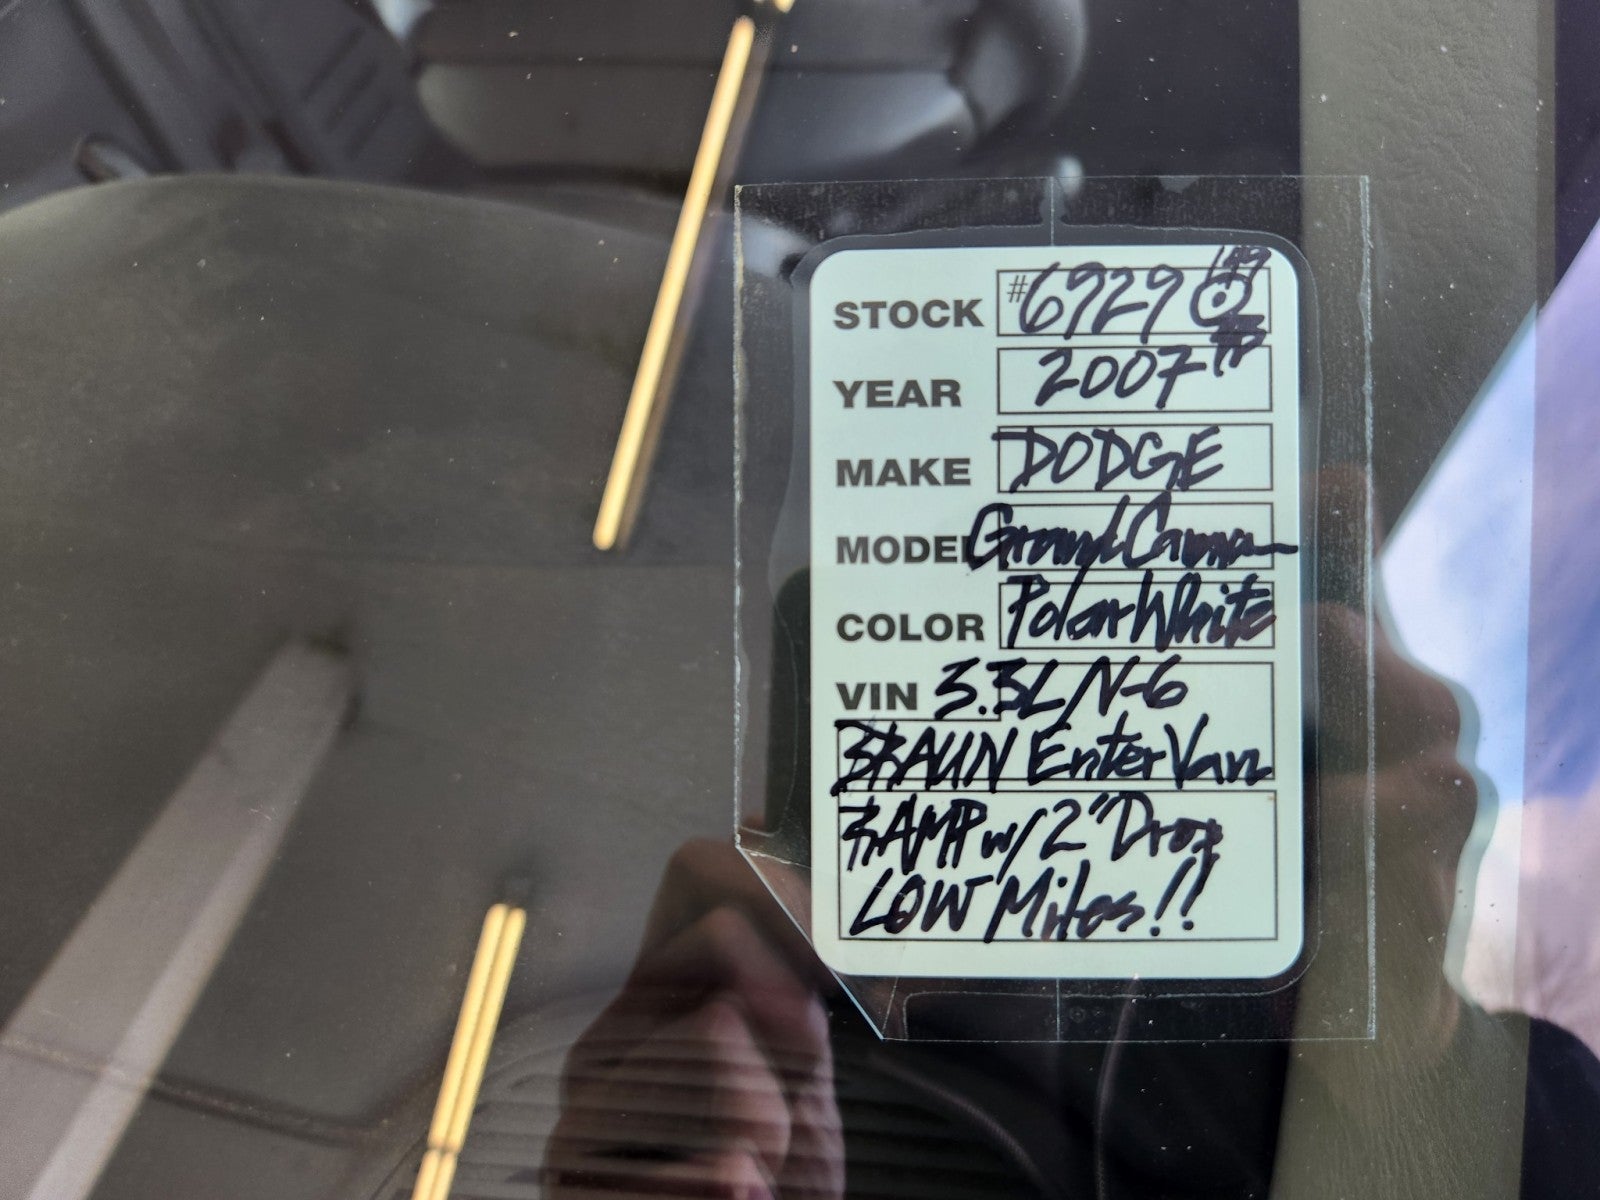 STOCK #6929
YEAR 2007
MAKE DODGE
MODEL Grand Caravan
COLOR Polar White
VIN 3.3L/V-6
BRAUN EnterVan
RAMP w/2" Drop
LOW Miles!!